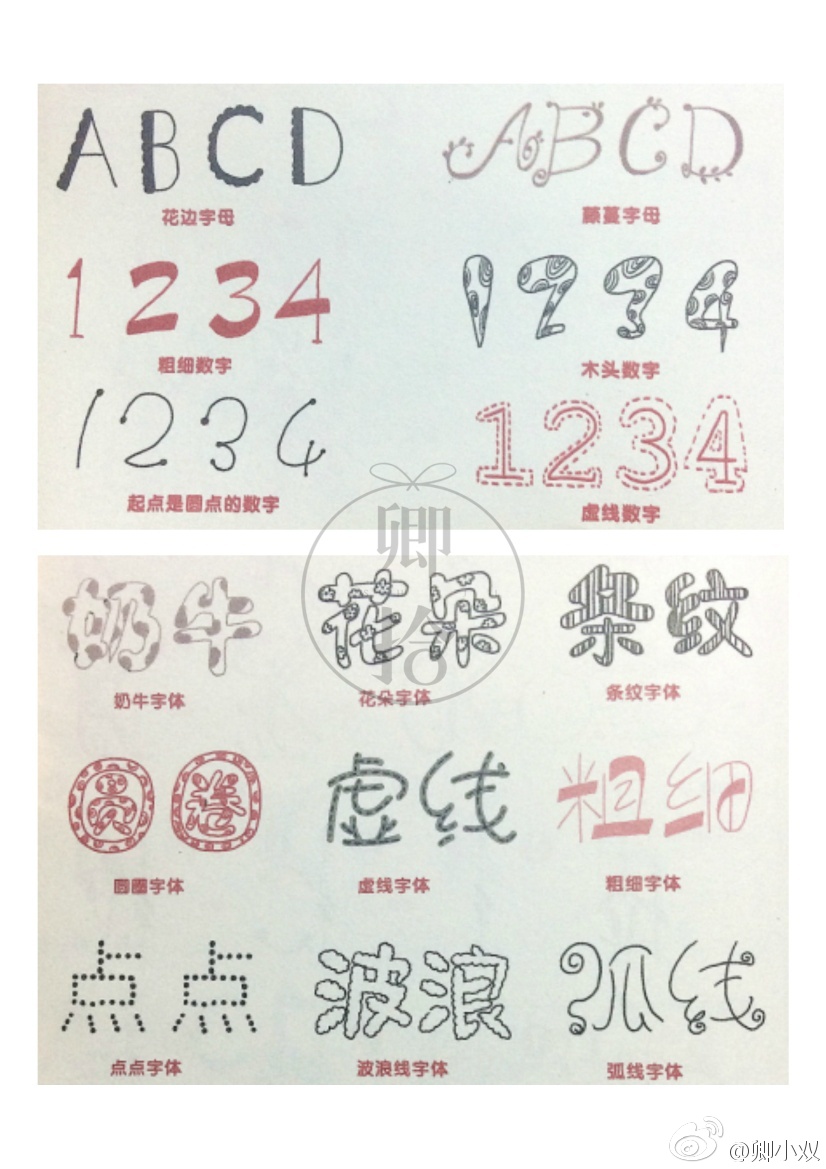 ABCD
ABCD
花边字母
藤蔓字母
1234
1234
粗细数字
木头数字
1234
1234
起点是圆点的数字
虚线数字
卿
拾
奶牛
花朵
条纹
奶牛字体
花朵字体
条纹字体
圆圈
虚线
粗细
圆圈字体
虚线字体
粗细字体
点点
波浪
弧线
点点字体
波浪线字体
弧线字体
@卿小双